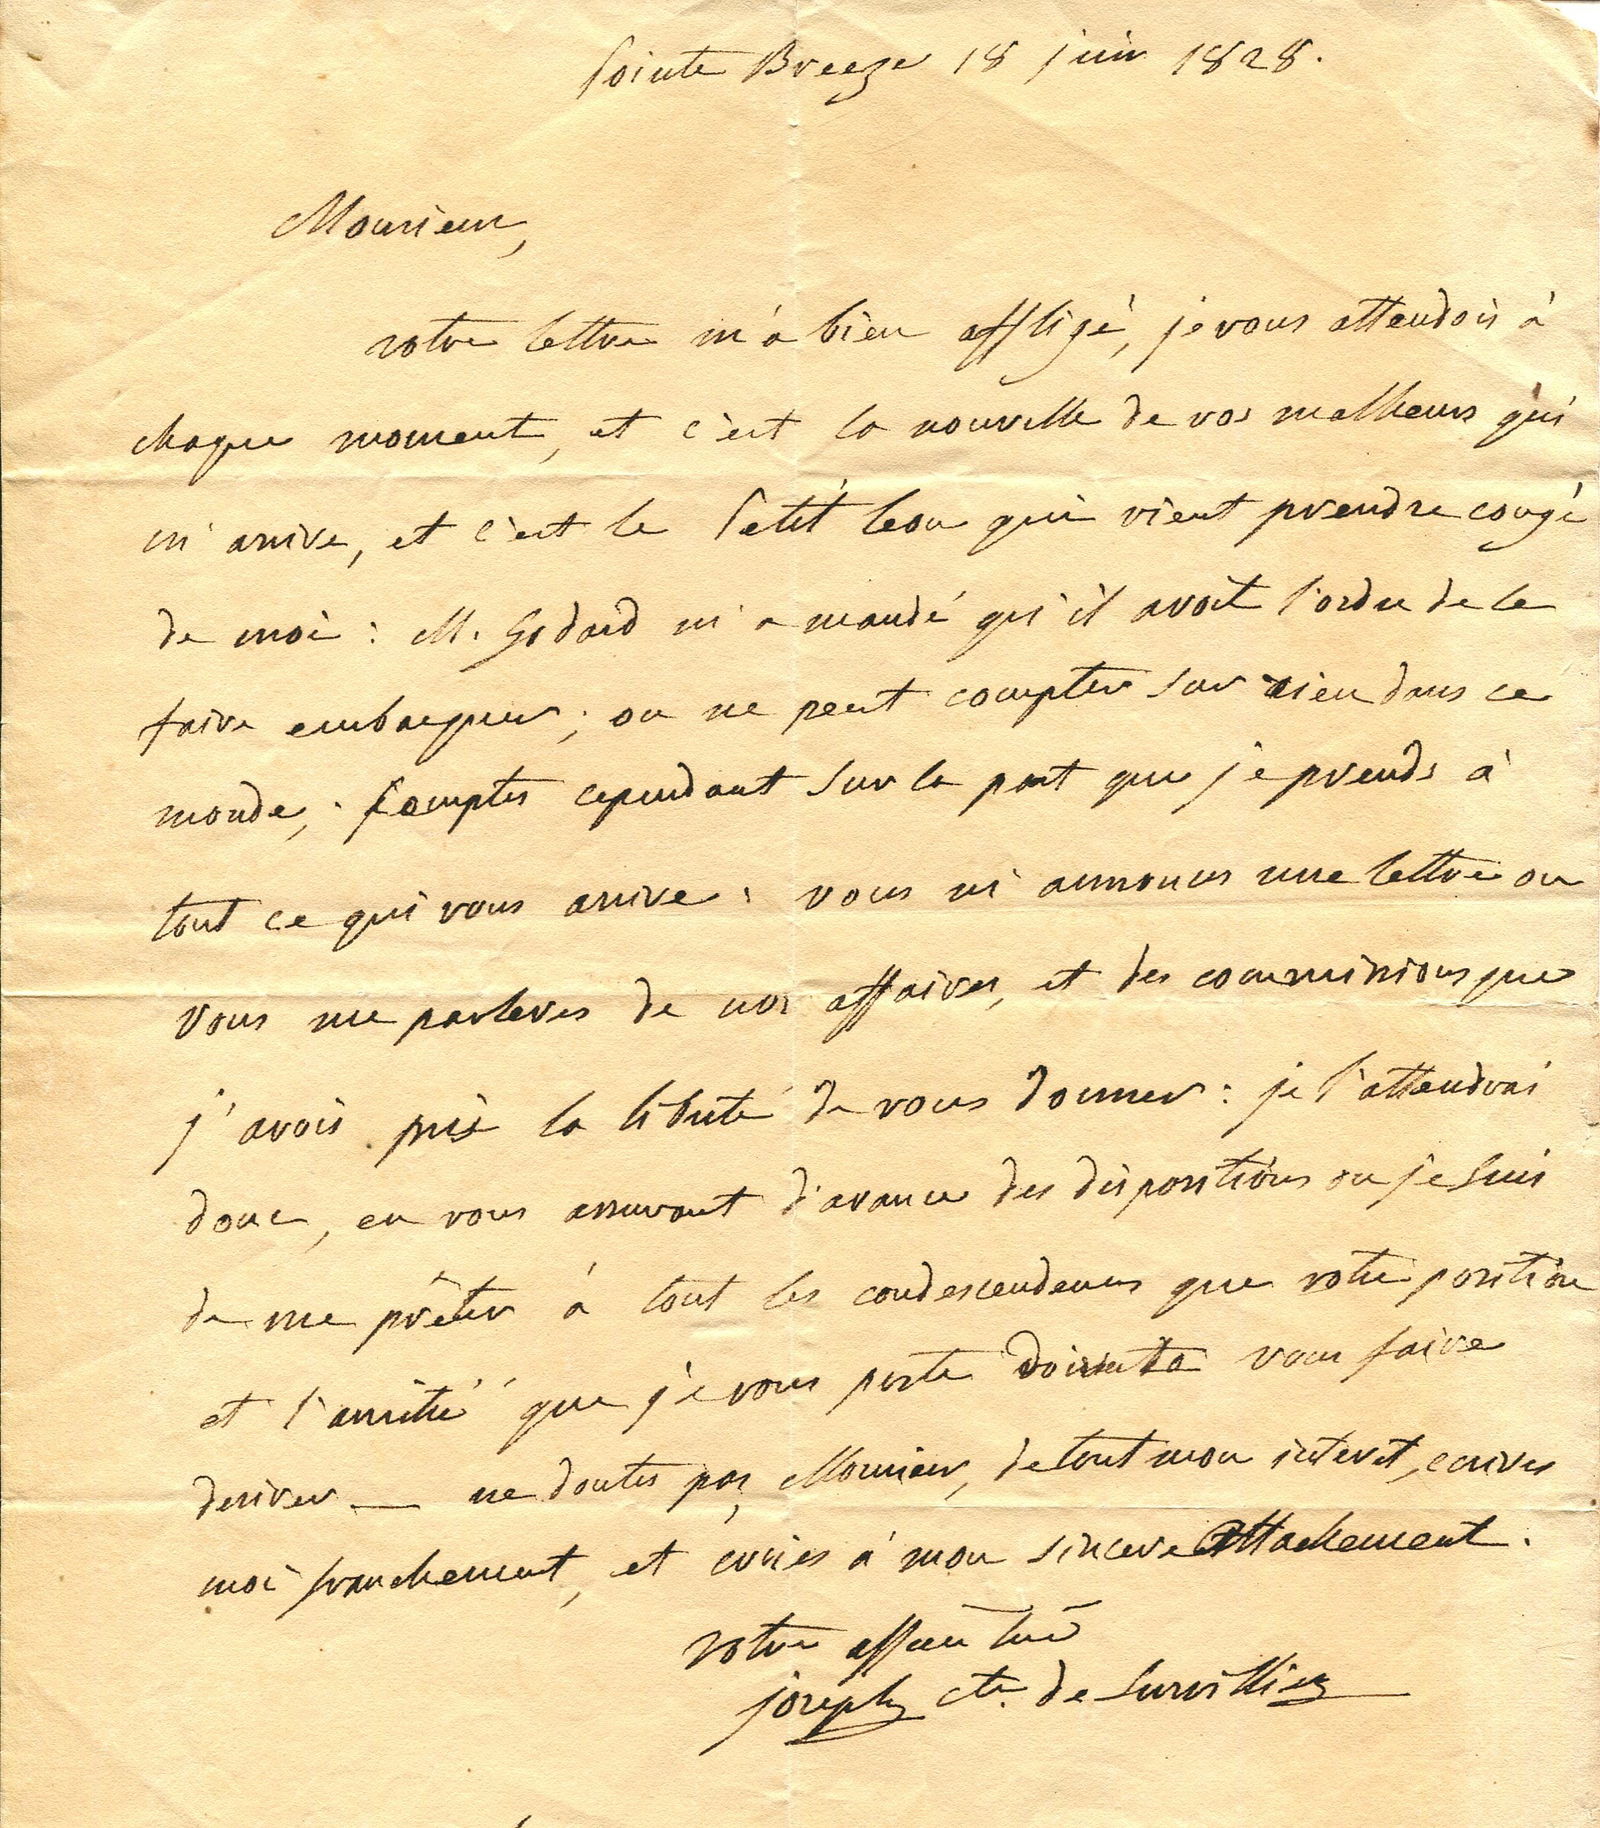 Pointe Breeze 18 juin 1828.
Monsieur,
votre lettre m'a bien affligé, je vous attendois à
chaque moment, et c'est la nouvelle de vos malheurs qui
m'arrive, et c'est le Petit leon qui vient prendre congé
de moi : M. Godard m'a mandé qu'il avoit l'ordre de le
faire embarquer ; on ne peut compter sur rien dans ce
monde, ; comptes cependant sur la part que je prends à
tout ce qui vous arrive : vous m'annonces une lettre ou
vous me parleres de nos affaires, et des commissions que
j'avois pris la liberté de vous donner : je l'attendrai
donc, en vous assurant d'avance des dispositions ou je suis
de me prêter à tout les condescendences que votre position
et l'amitié que je vous porte doivent vous faire
desirer — ne doutes pas, Monsieur, de tout mon interet, ecrives
moi franchement, et croies à mon sincere attachement.
votre affectioné
joseph cte. de Survilliers